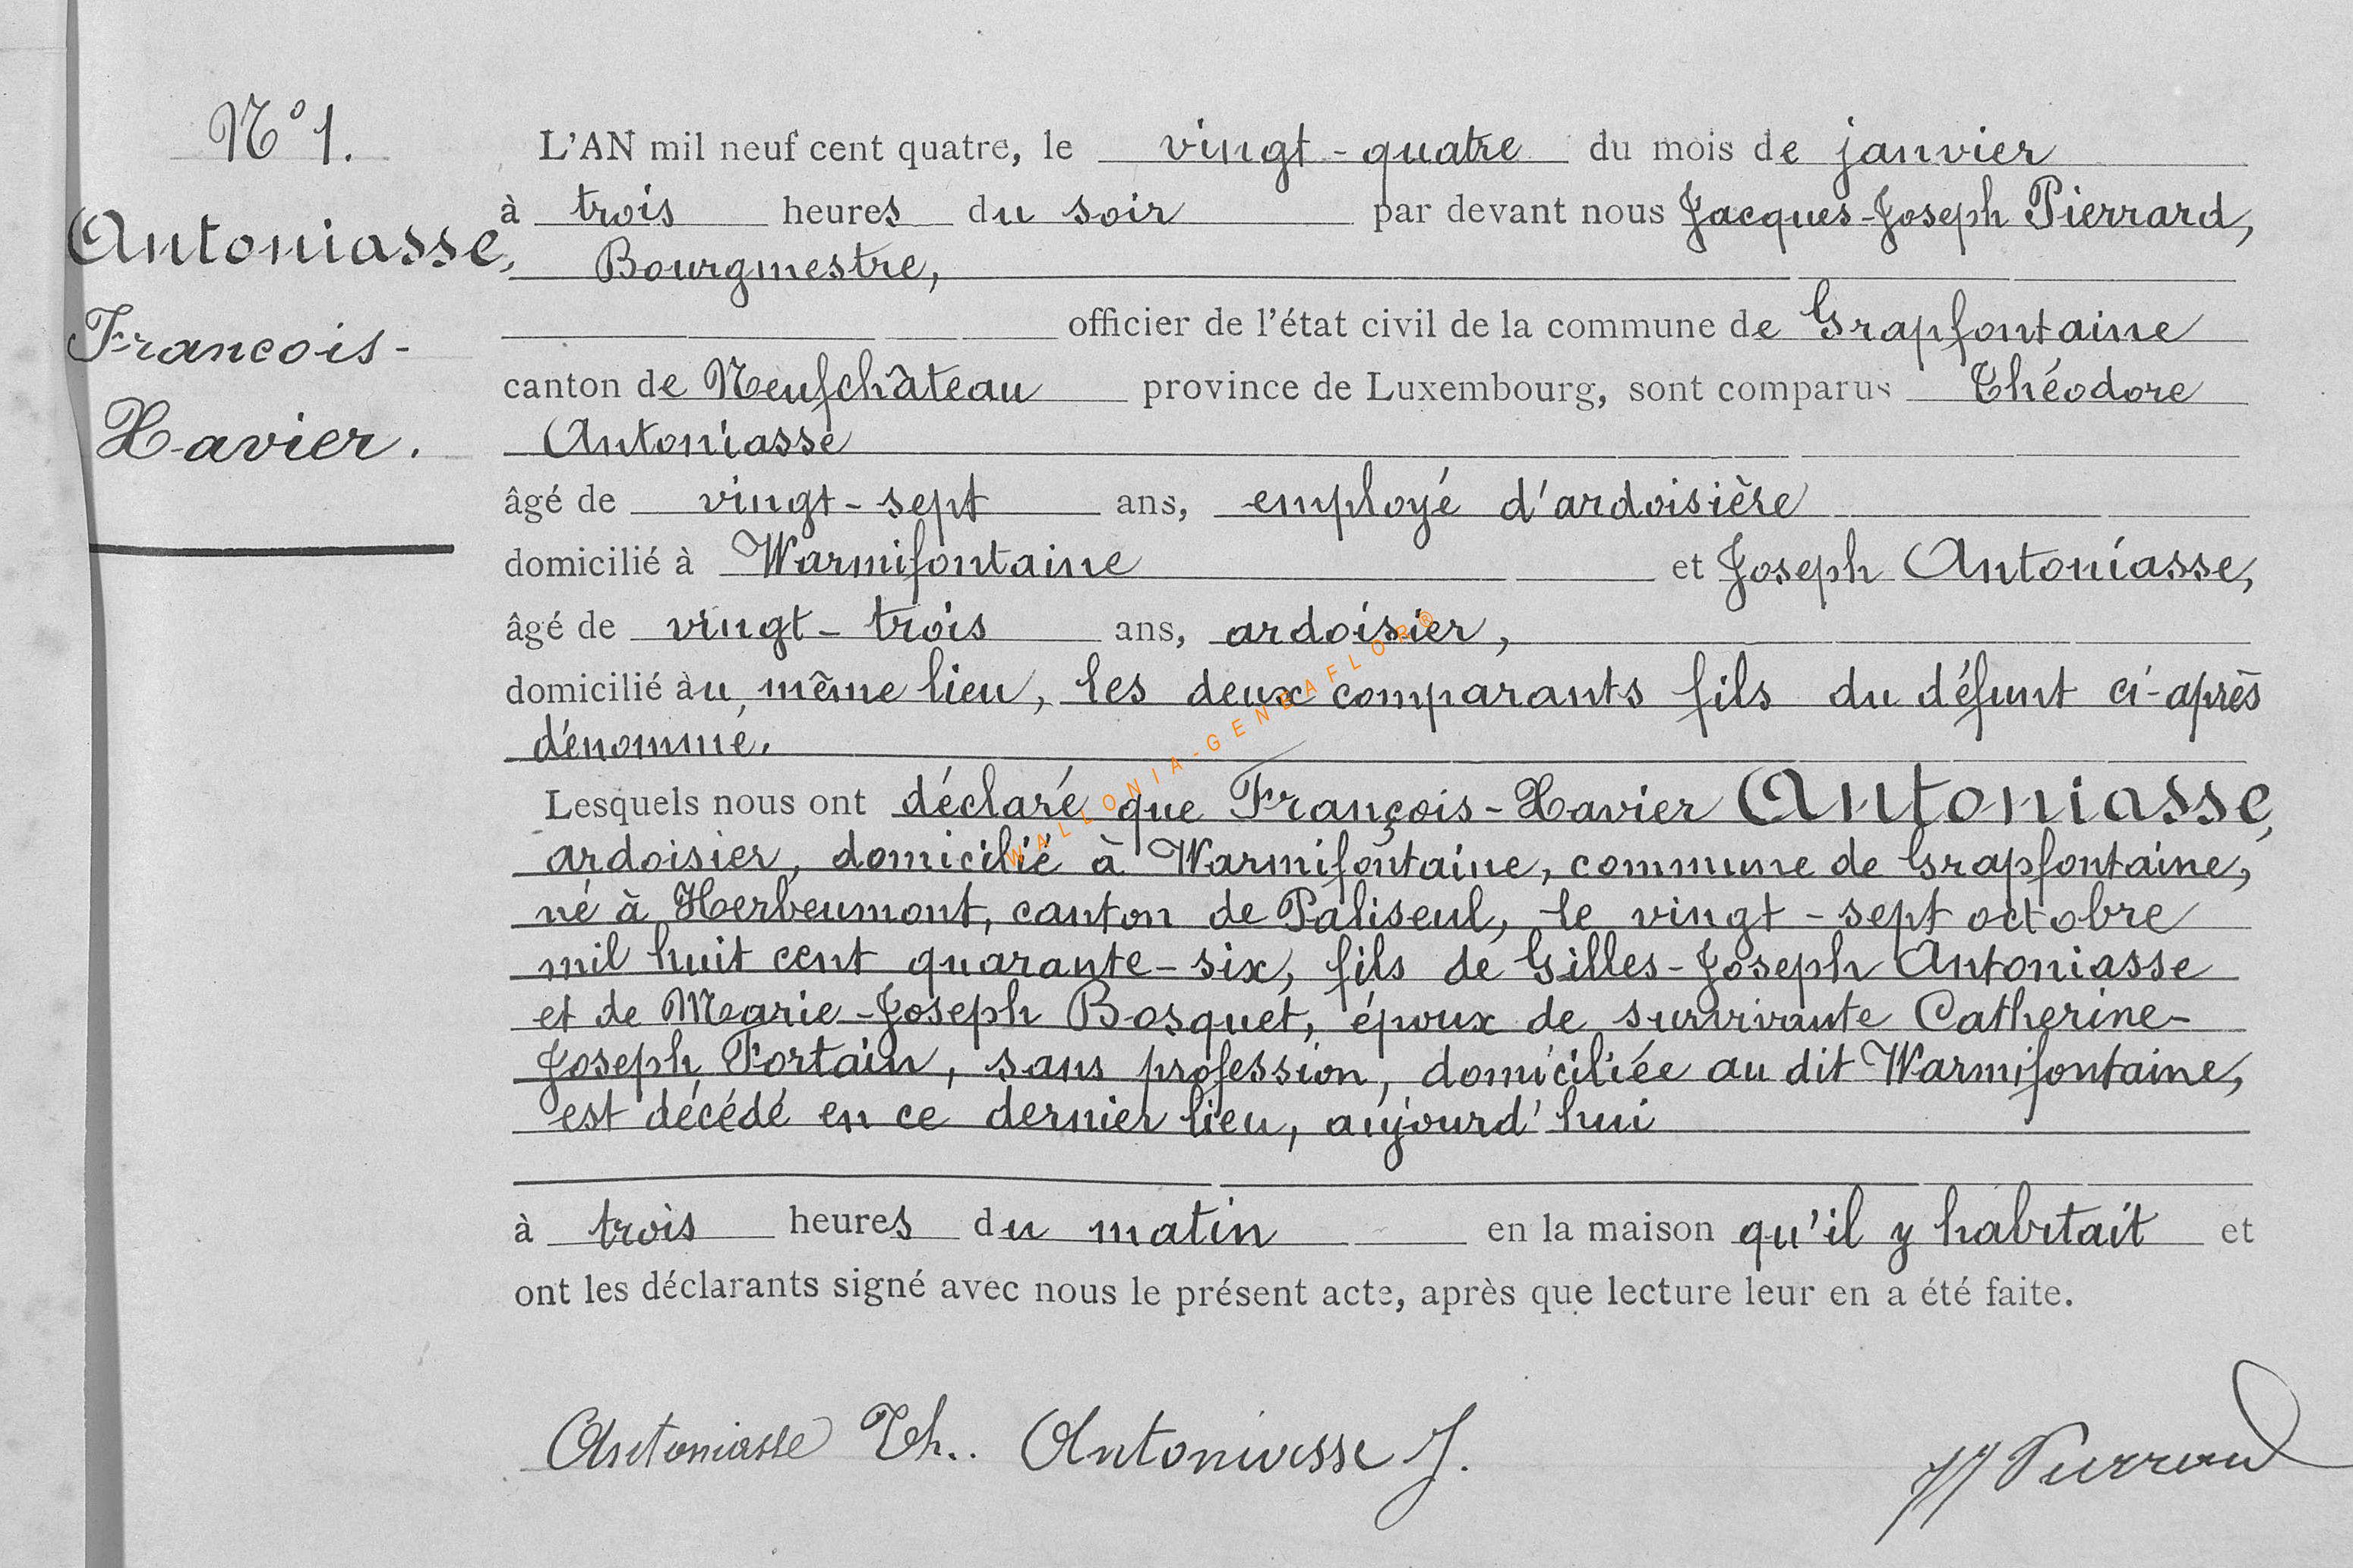 N° 1.
Antoniasse,
Francois-
Xavier.
L'AN mil neuf cent quatre, le vingt-quatre du mois de janvier
à trois heures du soir par devant nous Jacques-Joseph Pierrard,
Bourgmestre,
officier de l'état civil de la commune de Grapfontaine
canton de Neufchâteau province de Luxembourg, sont comparus Théodore
Antoniasse
âgé de vingt-sept ans, employé d'ardoisière
domicilié à Warmifontaine et Joseph Antoniasse,
âgé de vingt-trois ans, ardoisier,
domicilié au même lieu, les deux comparants fils du défunt ci-après
dénommé.
Lesquels nous ont déclaré que François-Xavier Antoniasse,
ardoisier, domicilié à Warmifontaine, commune de Grapfontaine,
né à Herbeumont, canton de Paliseul, le vingt-sept octobre
mil huit cent quarante-six, fils de Gilles-Joseph Antoniasse
et de Marie-Joseph Bosquet, époux de survivante Catherine-
Joseph Fortain, sans profession, domiciliée au dit Warmifontaine,
est décédé en ce dernier lieu, aujourd'hui
à trois heures du matin en la maison qu'il y habitait et
ont les déclarants signé avec nous le présent acte, après que lecture leur en a été faite.
Antoniasse Th.. Antoniasse J. JJ Pierrard
WALLONIA-GENDAFLOR®